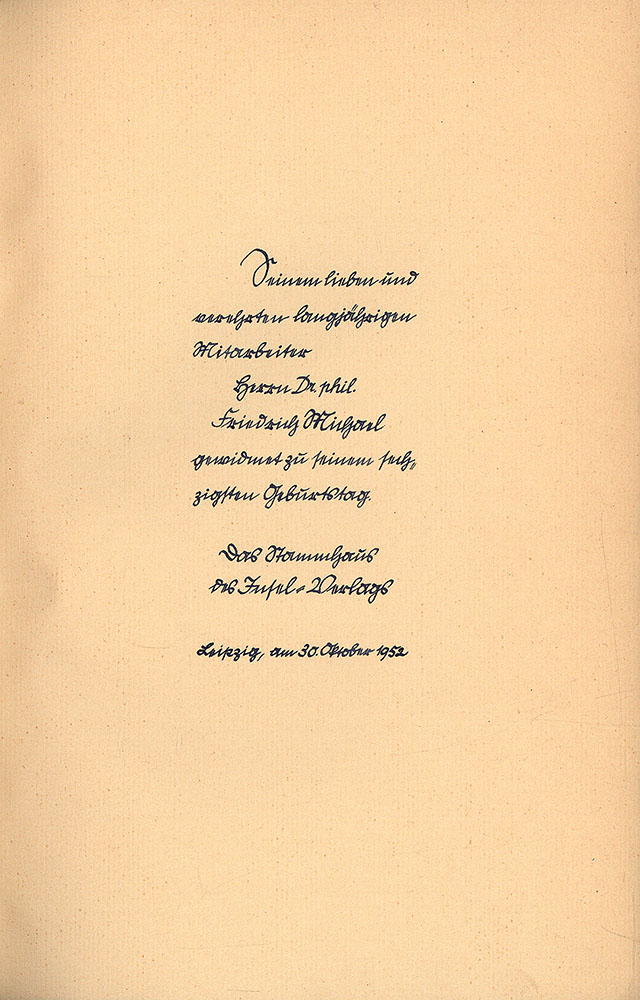 Seinem lieben und
verehrten langjährigen
Mitarbeiter
Herrn Dr. phil.
Friedrich Michael
gewidmet zu seinem sech-
zigsten Geburtstag.
Das Stammhaus
des Insel-Verlags
Leipzig, am 30. Oktober 1952